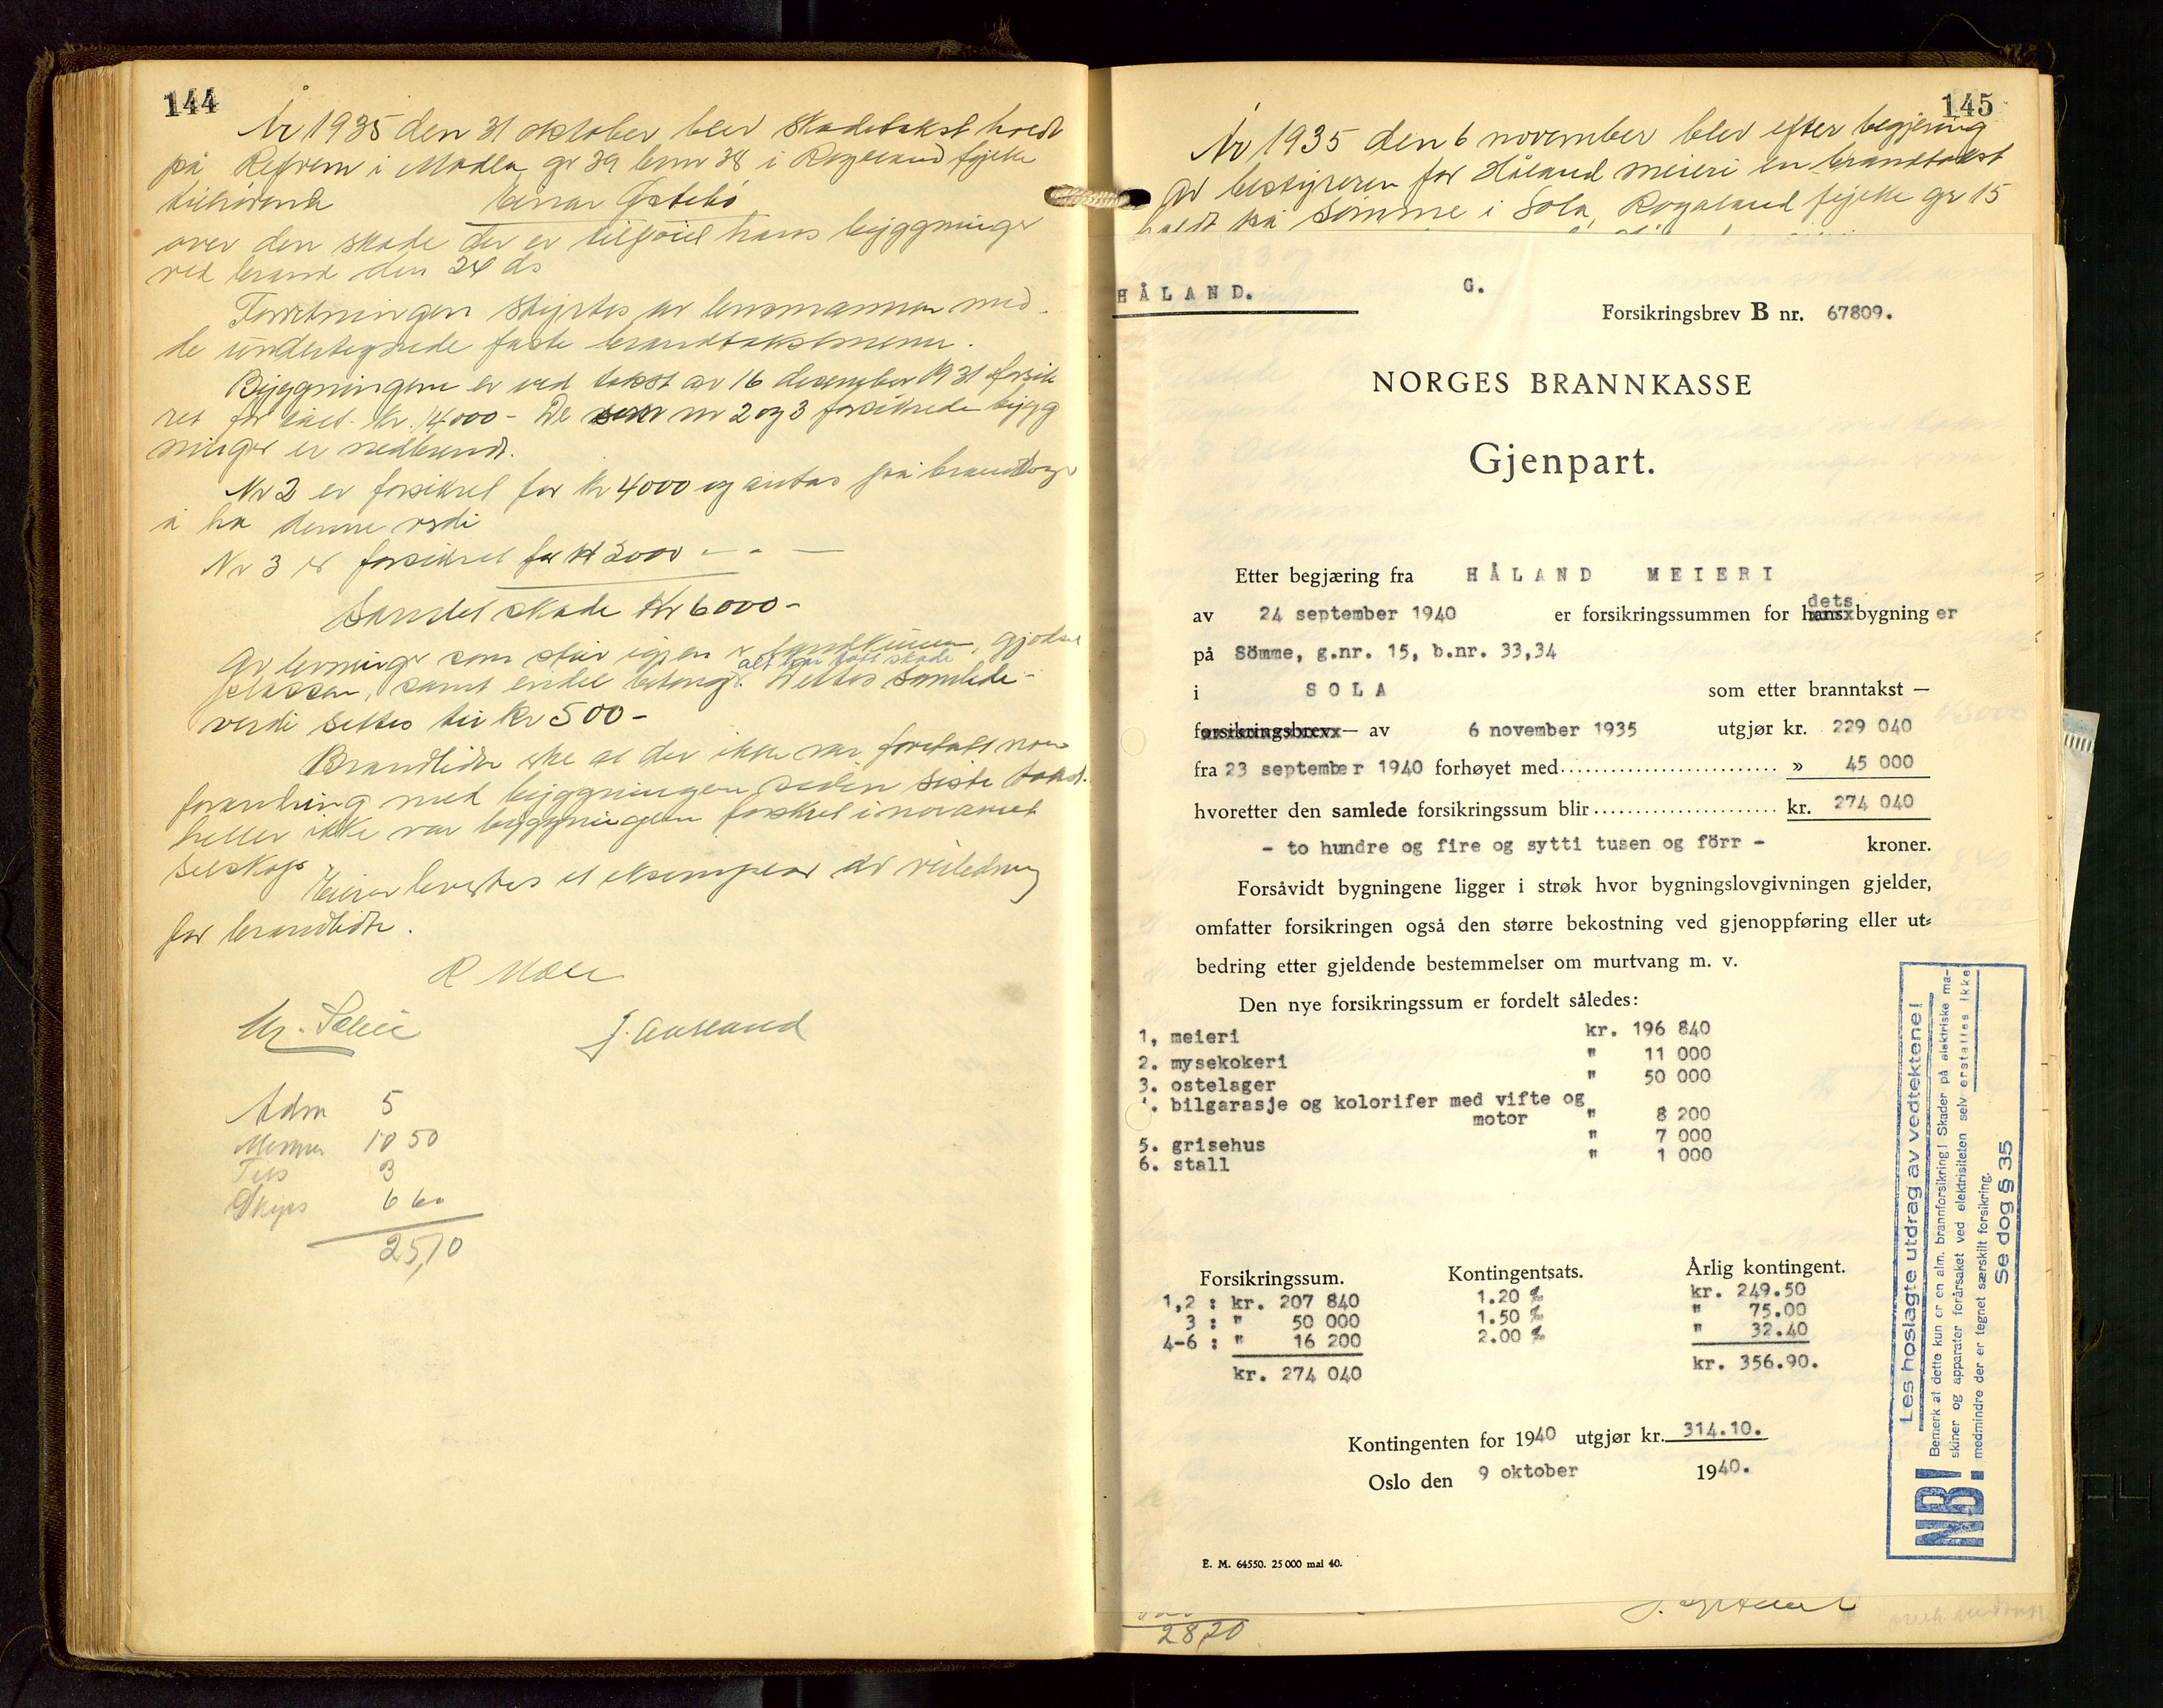 144
År 1935 den 31 oktober blev skadetakst holdt
på Revheim i Madla gr 39 brnr 38 i Rogaland fylke
tilhørende Einar Østebø
over den skade der er tilføiet hans bygninger
ved brand den 24 ds
Forretningen styrtes av lensmannen med
de undertegnede faste brandtakstmenn.
Byggningene er ved takst av 16 desember 1931 forsik
ret for kr. 14000 - De nr 2 og 3 forsikrede bygg
ninger er nedbrendt.
Nr 2 er forsikret for kr 4000 og antas på branddagen
å ha denne verdi
Nr 3 er forsikret for kr 2000 - " —
Samlet skade kr 6000 -
Av levninger som står igjen er gjødsel
alt har tatt skade
plassen, samt endel betong. Dettes samlede
verdi settes til kr 500 -
Brandlidte at der ikke var foretatt noen
forandring med byggningen siden siste takst.
heller ikke var byggningen forsikret i noe annet
selskap
Eieren levertes et eksemplar av veiledning
for brandlidte.
J. Aurland
Adm 5
10 50
3
Skyss 6 60
25,10
145
År 1935 den 6 november blev efter begjæring
av bestyreren for Håland meieri en brandtakst
holdt på Sømme i Sola, Rogaland fylke gr 15
HÅLAND.
G.
Forsikringsbrev B nr. 67809.
NORGES BRANNKASSE
Gjenpart.
Etter begjæring fra HÅLAND MEIERI
dets
av 24 september 1940 er forsikringssummen for hans bygning er
på Sömme, g.nr. 15, b.nr. 33,34
i SOLA som etter branntakst —
forsikringsbrev — av 6 november 1935 utgjør kr. 229 040
fra 23 september 1940 forhøyet med » 45 000
hvoretter den samlede forsikringssum blir kr. 274 040
- to hundre og fire og sytti tusen og förr - kroner.
Forsåvidt bygningene ligger i strøk hvor bygningslovgivningen gjelder,
omfatter forsikringen også den større bekostning ved gjenoppføring eller ut-
bedring etter gjeldende bestemmelser om murtvang m. v.
Den nye forsikringssum er fordelt således:
1, meieri kr. 196 840
2. mysekokeri " 11 000
3. ostelager " 50 000
4. bilgarasje og kolorifer med vifte og
motor " 8 200
5. grisehus " 7 000
6. stall " 1 000
Forsikringssum. Kontingentsats. Årlig kontingent.
1,2 : kr. 207 840 1.20 ‰ kr. 249.50
3 : " 50 000 1.50 ‰ " 75.00
4-6 : " 16 200 2.00 ‰ " 32.40
kr. 274 040 kr. 356.90.
Kontingenten for 1940 utgjør kr. 314.10.
Oslo den 9 oktober 1940.
E. M. 64550. 25 000 mai 40.
NB! Les hoslagte utdrag av vedtektene!
Bemerk at dette kun er en alm. brannforsikring! Skader på elektriske ma-
skiner og apparater forårsaket ved elektrisiteten selv erstattes ikke
medmindre der er tegnet særskilt forsikring.
Se dog § 35
28,20